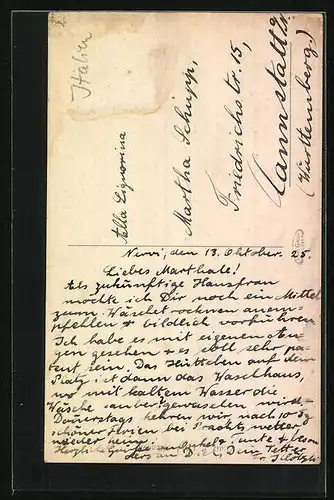 Italien
Alla Signorina
Martha Schupp,
Friedrichstr. 15,
Cannstatt a/N.
(Württemberg.)
Nervi, den 13. Oktober 25.
Liebes Marthale!
Als zukünftige Hausfrau
möchte ich Dir noch ein Mittel
zum Wäschetrocknen anem-
pfehlen + bildlich vorführen.
Ich habe es mit eigenen Au-
gen gesehen + es soll sehr pa-
tent sein. Das Hüttchen auf dem
Platz ist dann das Waschhaus,
wo mit kaltem Wasser die
Wäsche sauber gewaschen wird.
Donnerstags kehren wir nach 10
schönen Ferien bei Prachtswetter
wieder heim.
Herzliche Grüsse an Onkel + Tante +
ders an D.